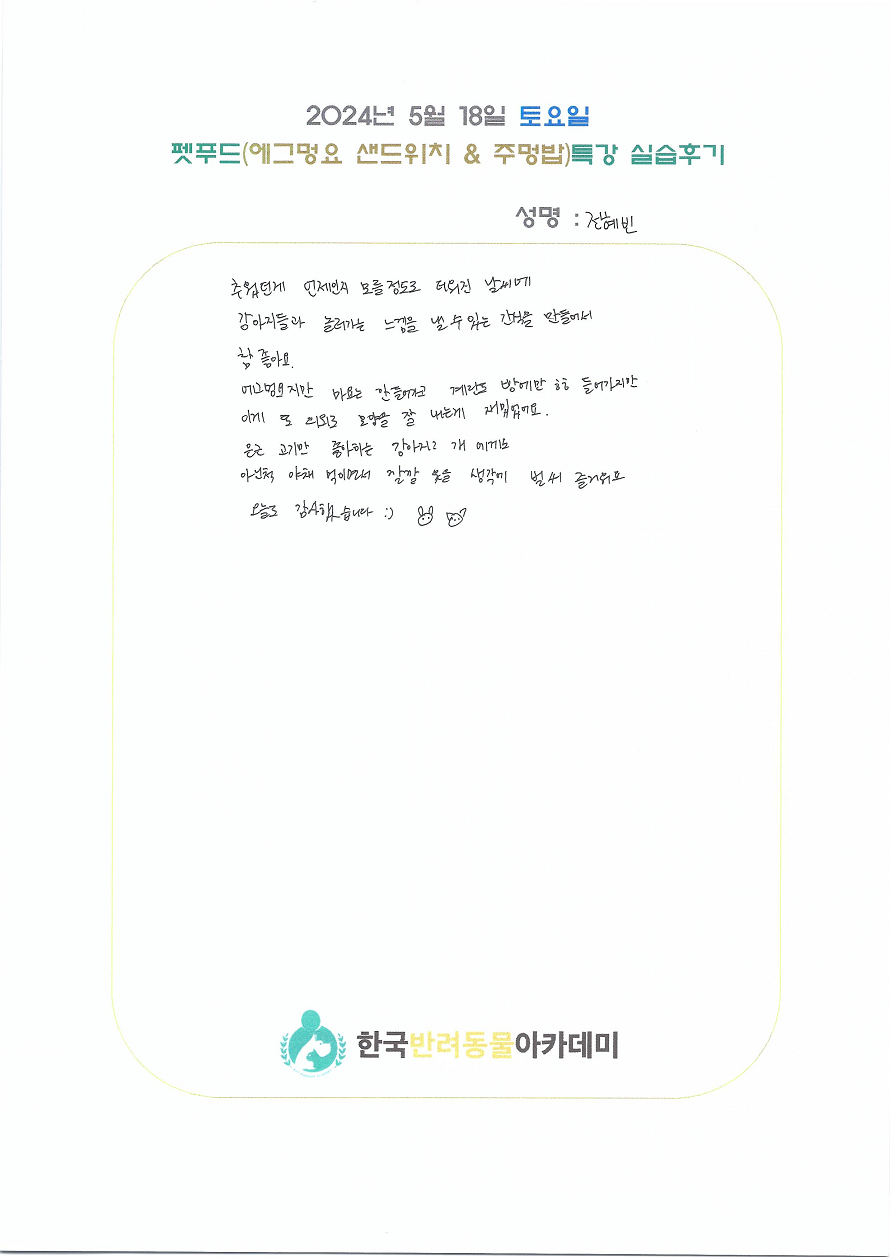 2024년 5월 18일 토요일
펫푸드(에그멍요 샌드위치 & 주멍밥)특강 실습후기
성명 : 전혜빈
추웠던게 언제인지 모를정도로 더워진 날씨에
강아지들과 놀러가는 느낌을 낼 수 있는 간식을 만들어서
참 좋아요.
에그멍요지만 마요는 안들어가고 계란도 빵에만 들어가지만
이게 또 의외로 모양을 잘 내는게 재밌었어요.
은근 고기만 좋아하는 강아지2 개 에게도
아닌척 야채 먹이면서 깔깔 웃을 생각에 벌써 즐거워요
오늘도 감사했습니다 :)
한국반려동물아카데미